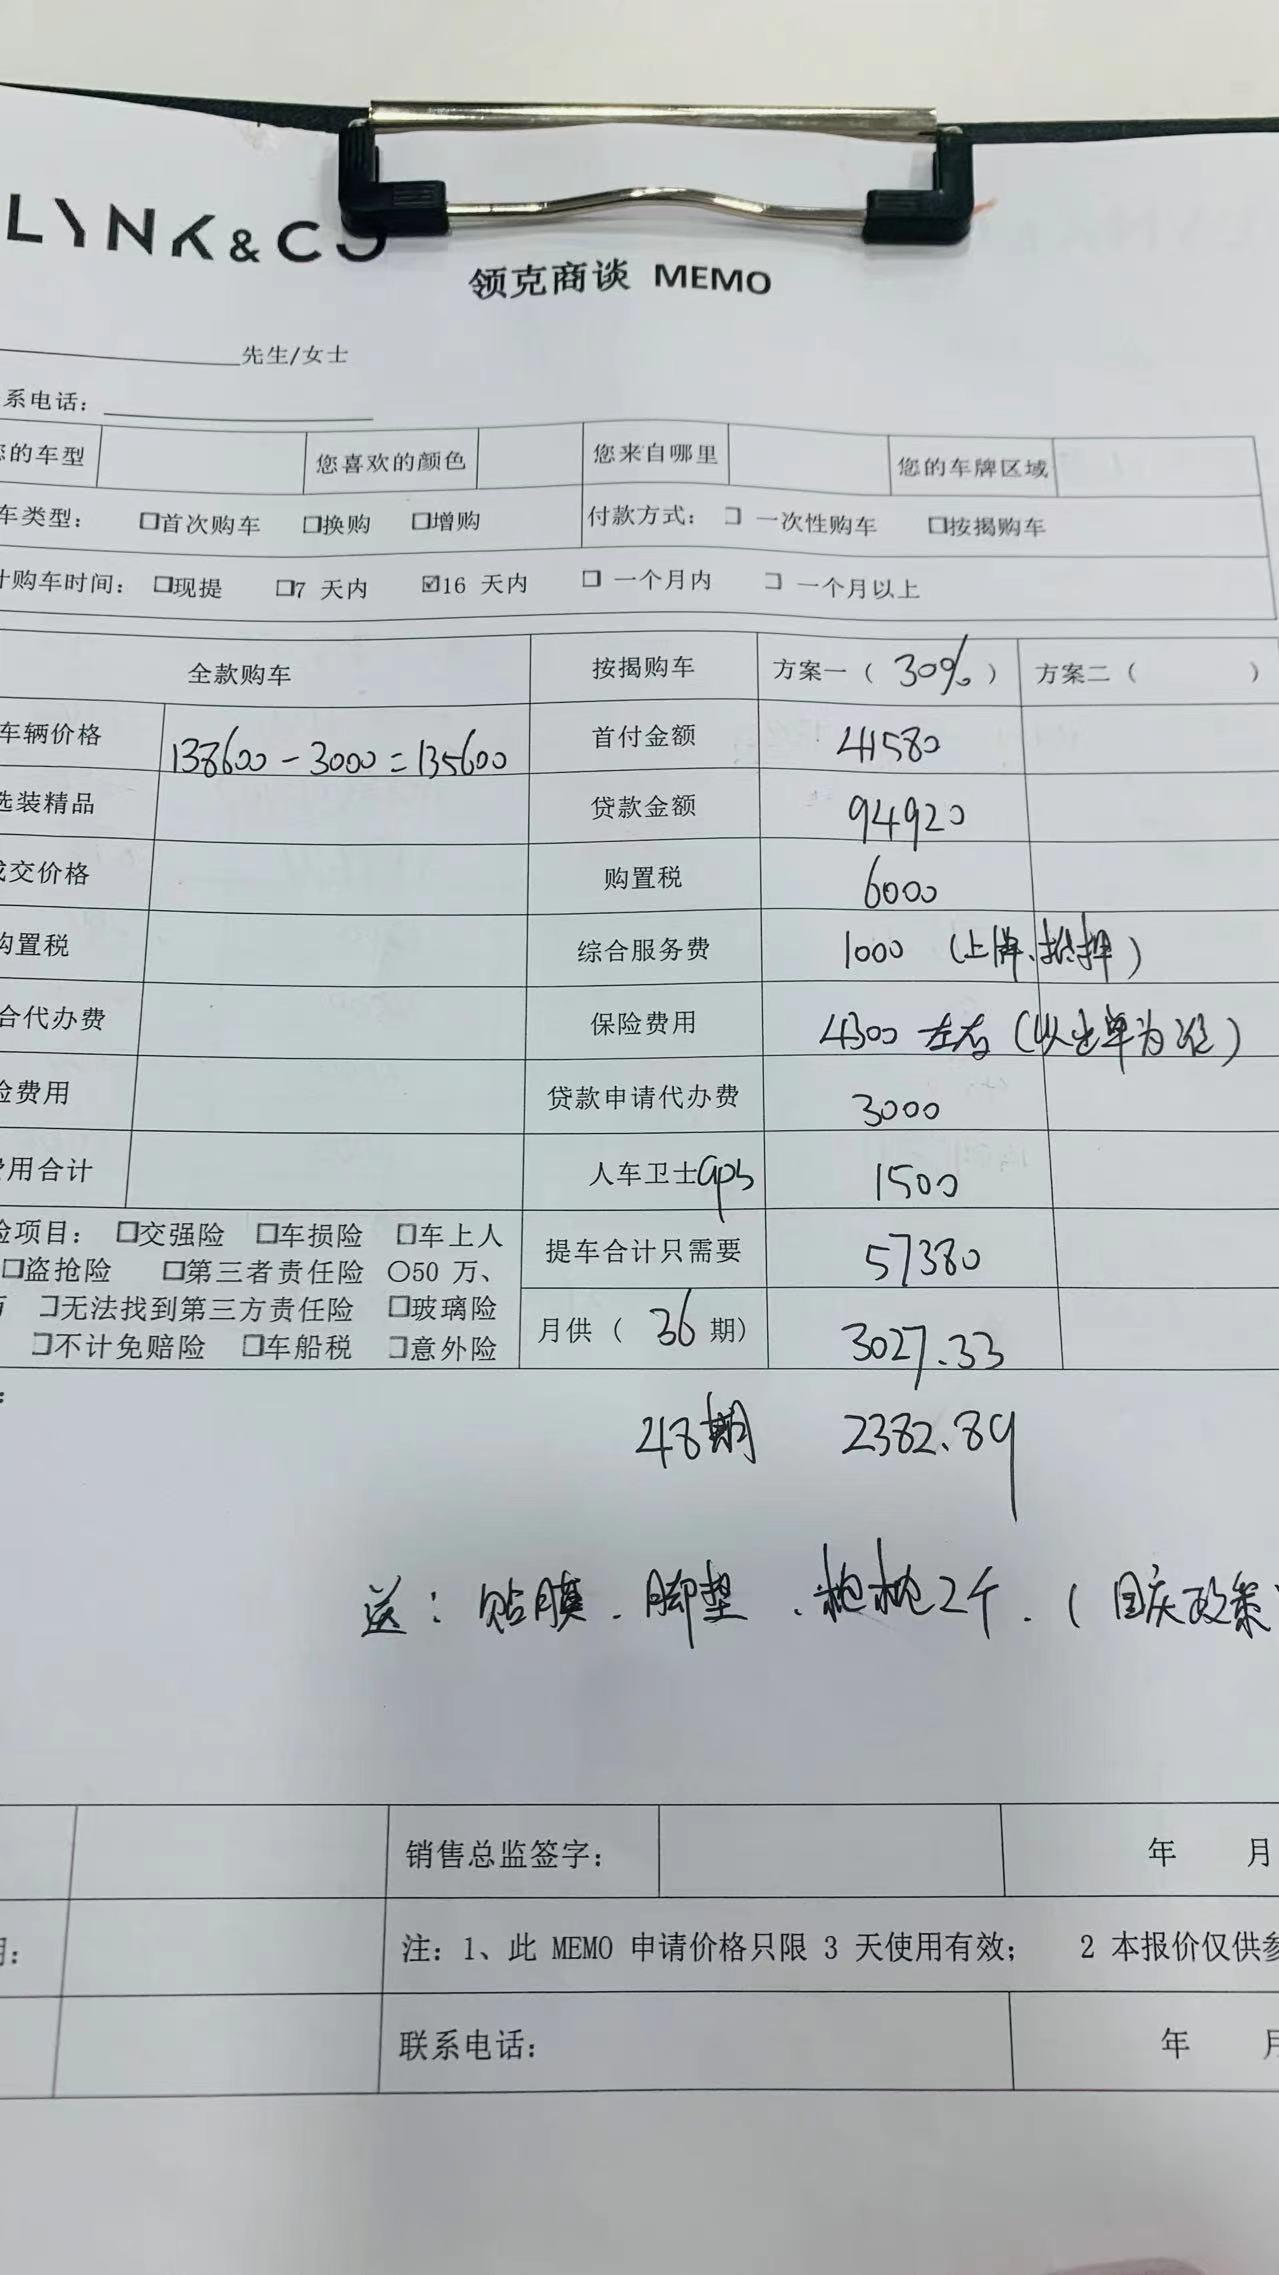 LYNK & CO
领克商谈 MEMO
先生/女士
系电话：
您的车型 您喜欢的颜色 您来自哪里 您的车牌区域
车类型： □首次购车 □换购 □增购 付款方式： □ 一次性购车 □按揭购车
计购车时间： □现提 □7 天内 ☑16 天内 □ 一个月内 □ 一个月以上
全款购车 按揭购车 方案一（ 30% ） 方案二（ ）
车辆价格 138600-3000=135600 首付金额 41580
选装精品 贷款金额 94920
成交价格 购置税 6000
购置税 综合服务费 1000 （上牌、抵押）
合代办费 保险费用 4300 左右（以出单为准）
险费用 贷款申请代办费 3000
费用合计 人车卫士GPS 1500
险项目： □交强险 □车损险 □车上人 提车合计只需要 57380
□盗抢险 □第三者责任险 ○50 万、
□无法找到第三方责任险 □玻璃险 月供（ 36 期） 3027.33
□不计免赔险 □车船税 □意外险
：
48期 2382.89
送：贴膜、脚垫、抱枕2个.（国庆政策
销售总监签字： 年 月
期： 注：1、此 MEMO 申请价格只限 3 天使用有效； 2 本报价仅供参
联系电话： 年 月